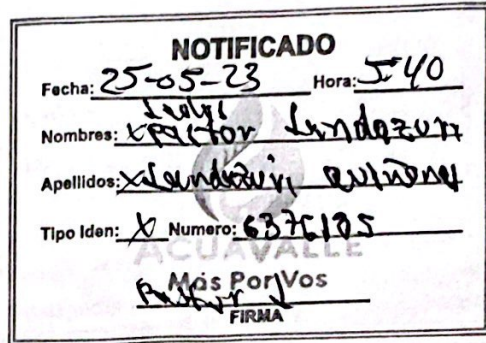 NOTIFICADO
Fecha: 25-05-23 Hora: 5:40
Nombres: Landazuri
Apellidos: Landazuri
Tipo Iden: X Numero: 6376185
ACUAVALLE
Más Por Vos
FIRMA